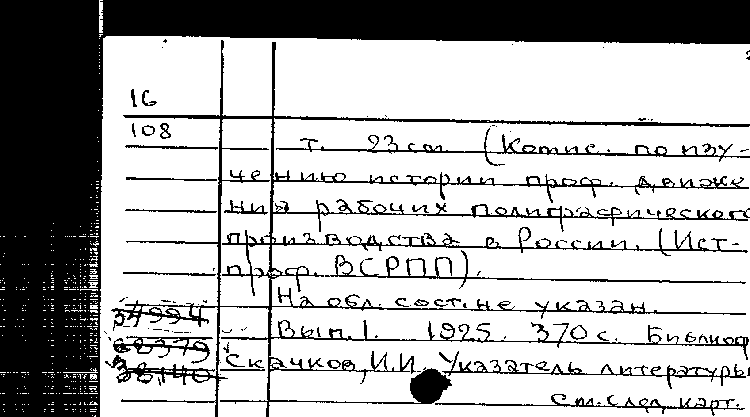 16
108
т. 23 см (Комис. по изу-
чению истории проф. движе
ния рабочих полиграфического
производства в России. (Ист-
проф. ВСРПП).
На обл. сост. не указан.
34994
Вып. 1. 1925. 370 с. Библиоф
62379 Скачков, И.И. Указатель литературы
38140
см. след. карт.